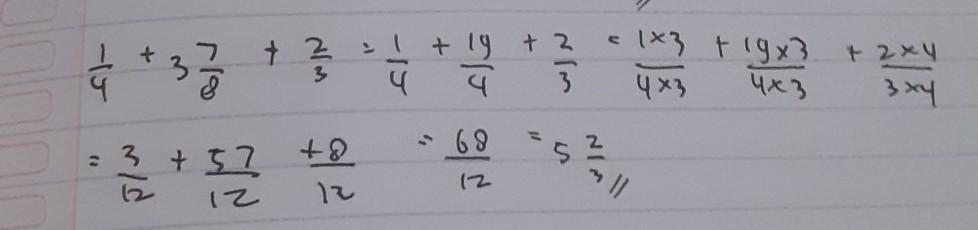 1/4 + 3 7/8 + 2/3 = 1/4 + 19/4 + 2/3 = 1×3/4×3 + 19×3/4×3 + 2×4/3×4
= 3/12 + 57/12 + 8/12 = 68/12 = 5 2/3 //